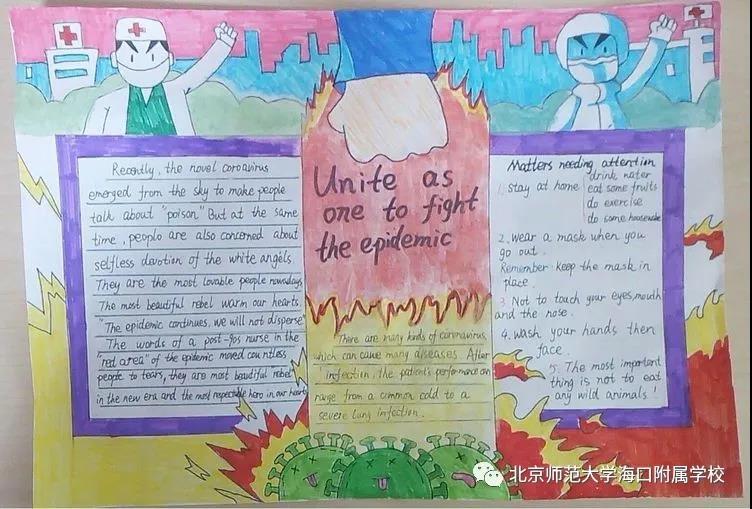 Recently, the novel coronavirus
emerged from the sky to make people
talk about "poison." But at the same
time, people are also concerned about
selfless devotion of the white angels
They are the most lovable people nowadays,
The most beautiful rebel warm our hearts.
"The epidemic continues, we will not disperse"
The words of a post-90s nurse in the
"red area" of the epidemic moved countless
people to tears, they are most beautiful rebel
in the new era and the most respectable hero in our heart
Unite as
one to fight
the epidemic
There are many kinds of coronavirus,
which can cause many diseases. After
infection, the patient's performance can
range from a common cold to a
severe lung infection.
Matters needing attention
drink water
1. stay at home
eat some fruits
do exercise
do some housework
2. Wear a mask when you
go out.
Remember: keep the mask in
place.
3. Not to touch your eyes, mouth
and the nose.
4. Wash your hands then
face.
5. The most important
thing is not to eat
any wild animals!
北京师范大学海口附属学校